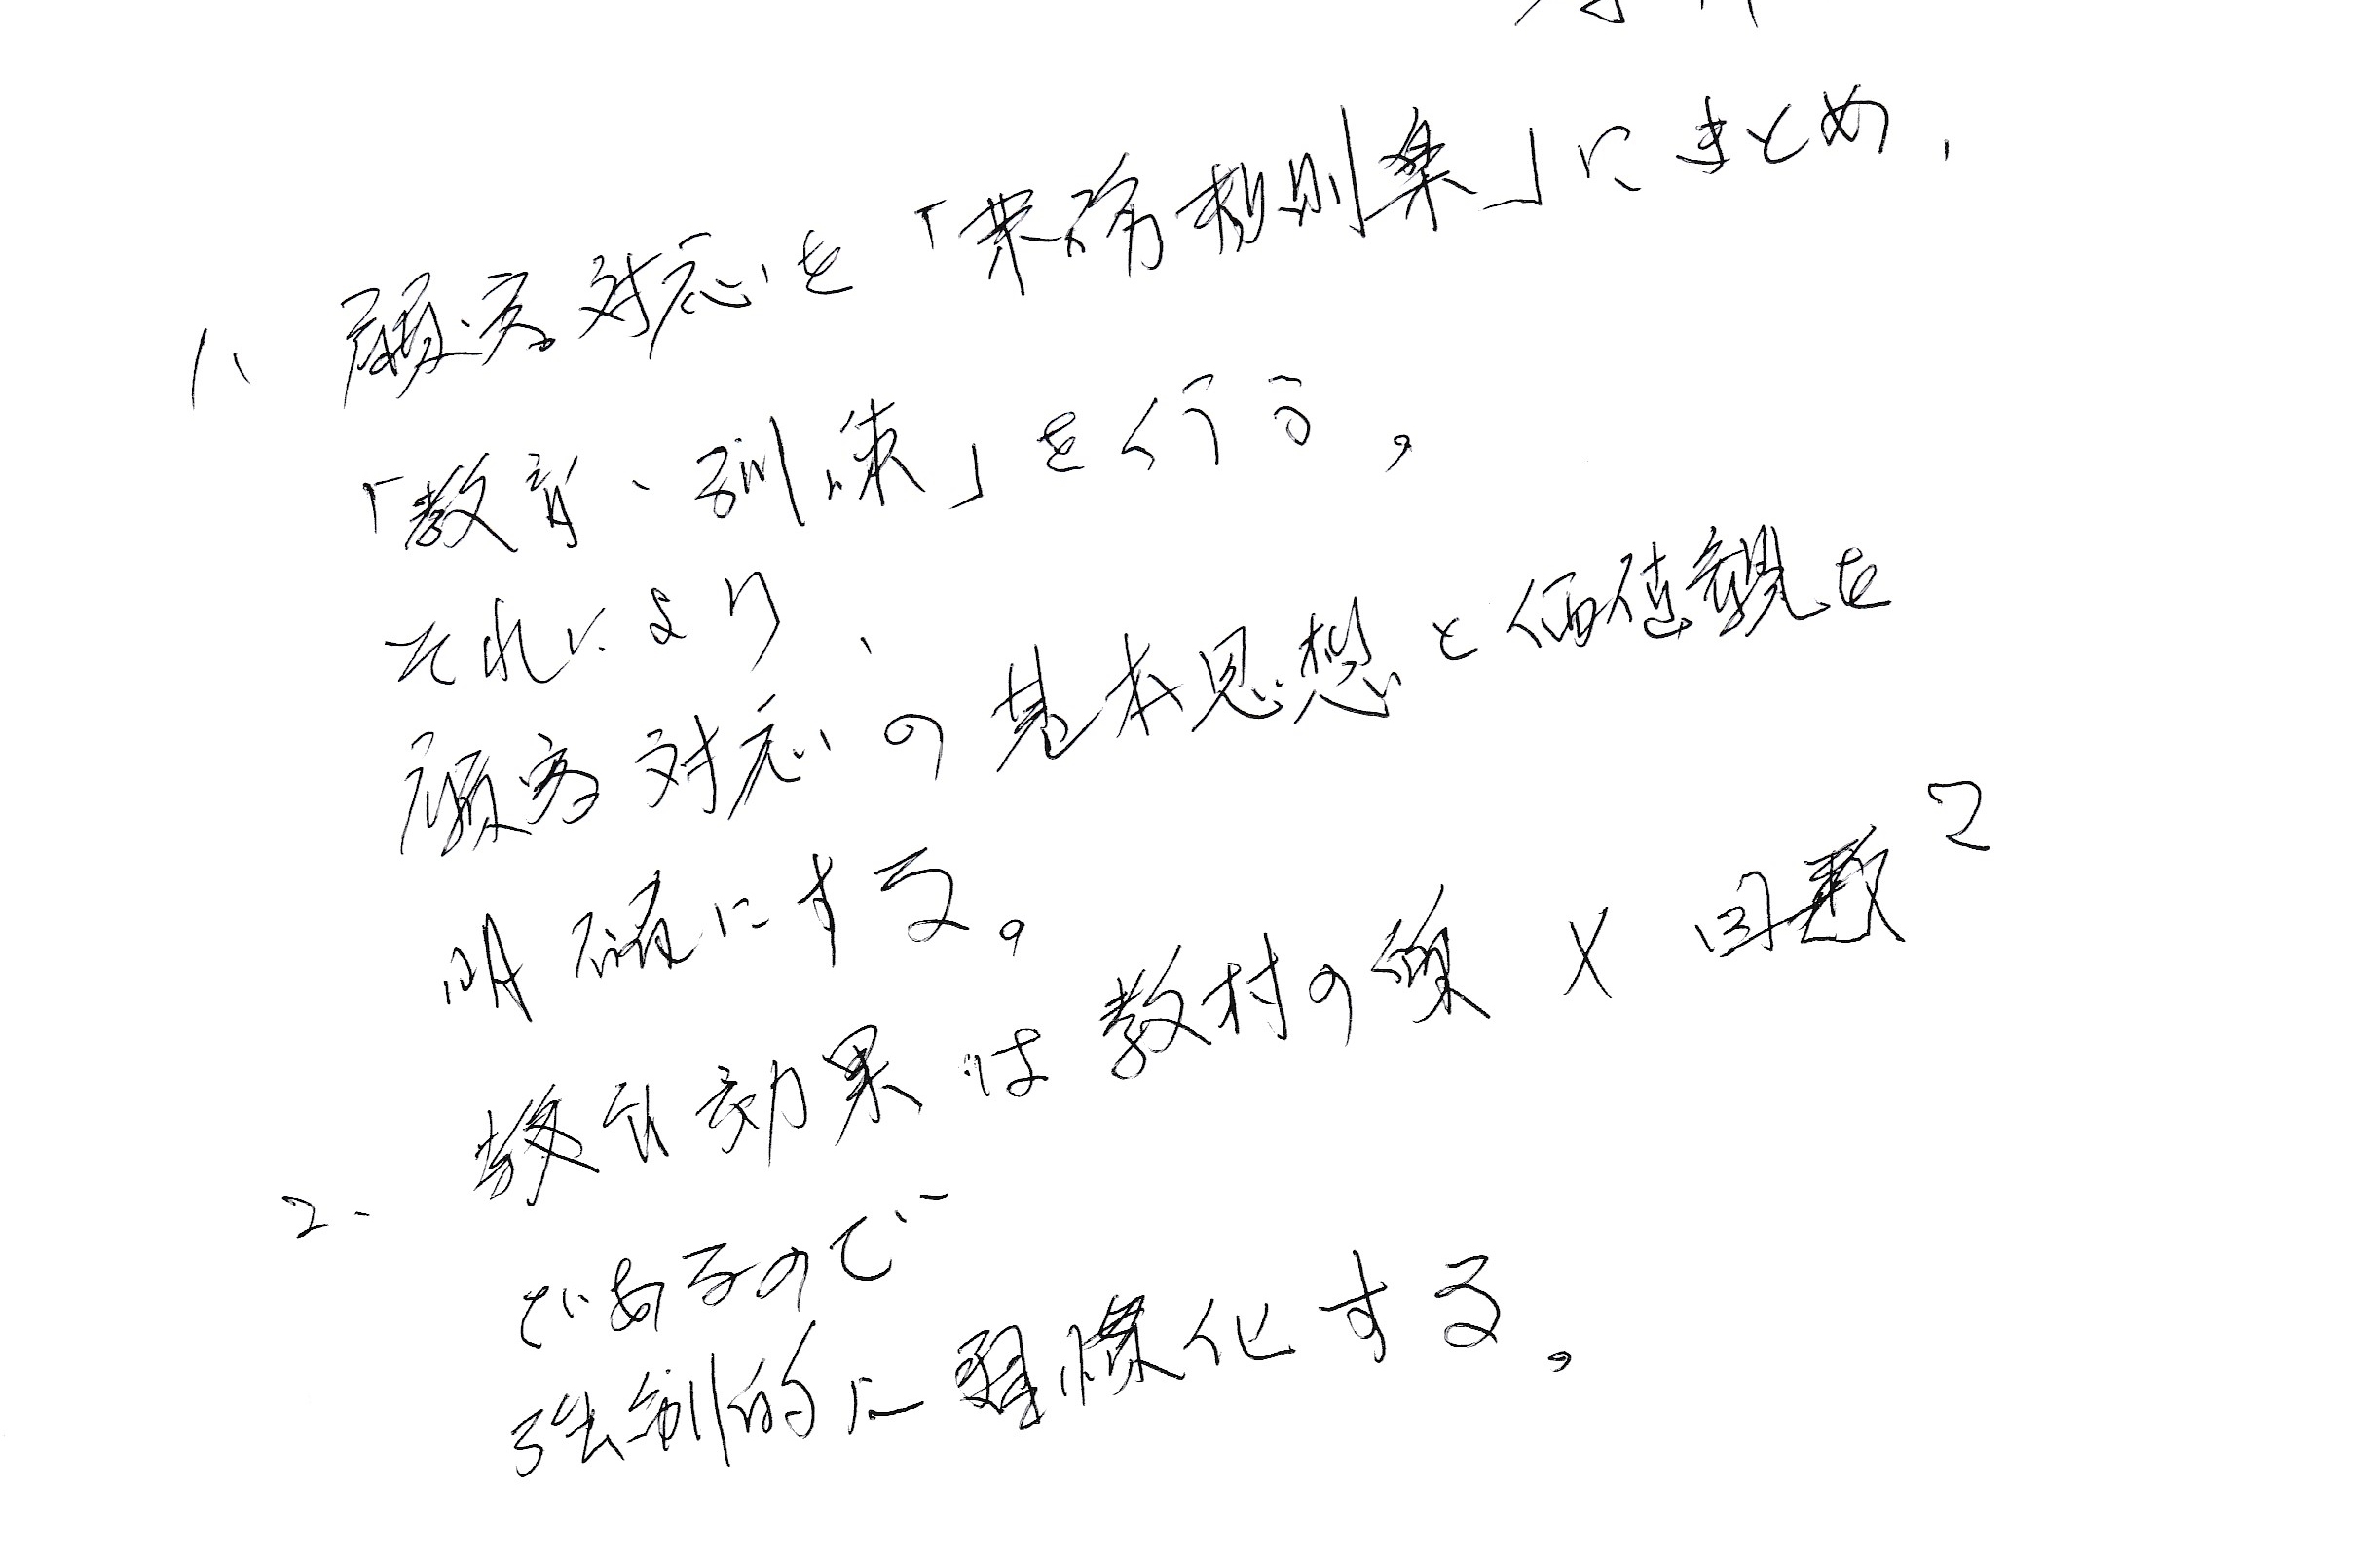 1、顧客対応を「業務規則集」にまとめ、
「教育・訓練」を行う。
それにより、
顧客対応の基本思想と価値観を
明確にする。
2. 教育効果は教材の質 × 回数²
であるので
強制的に習慣化する。